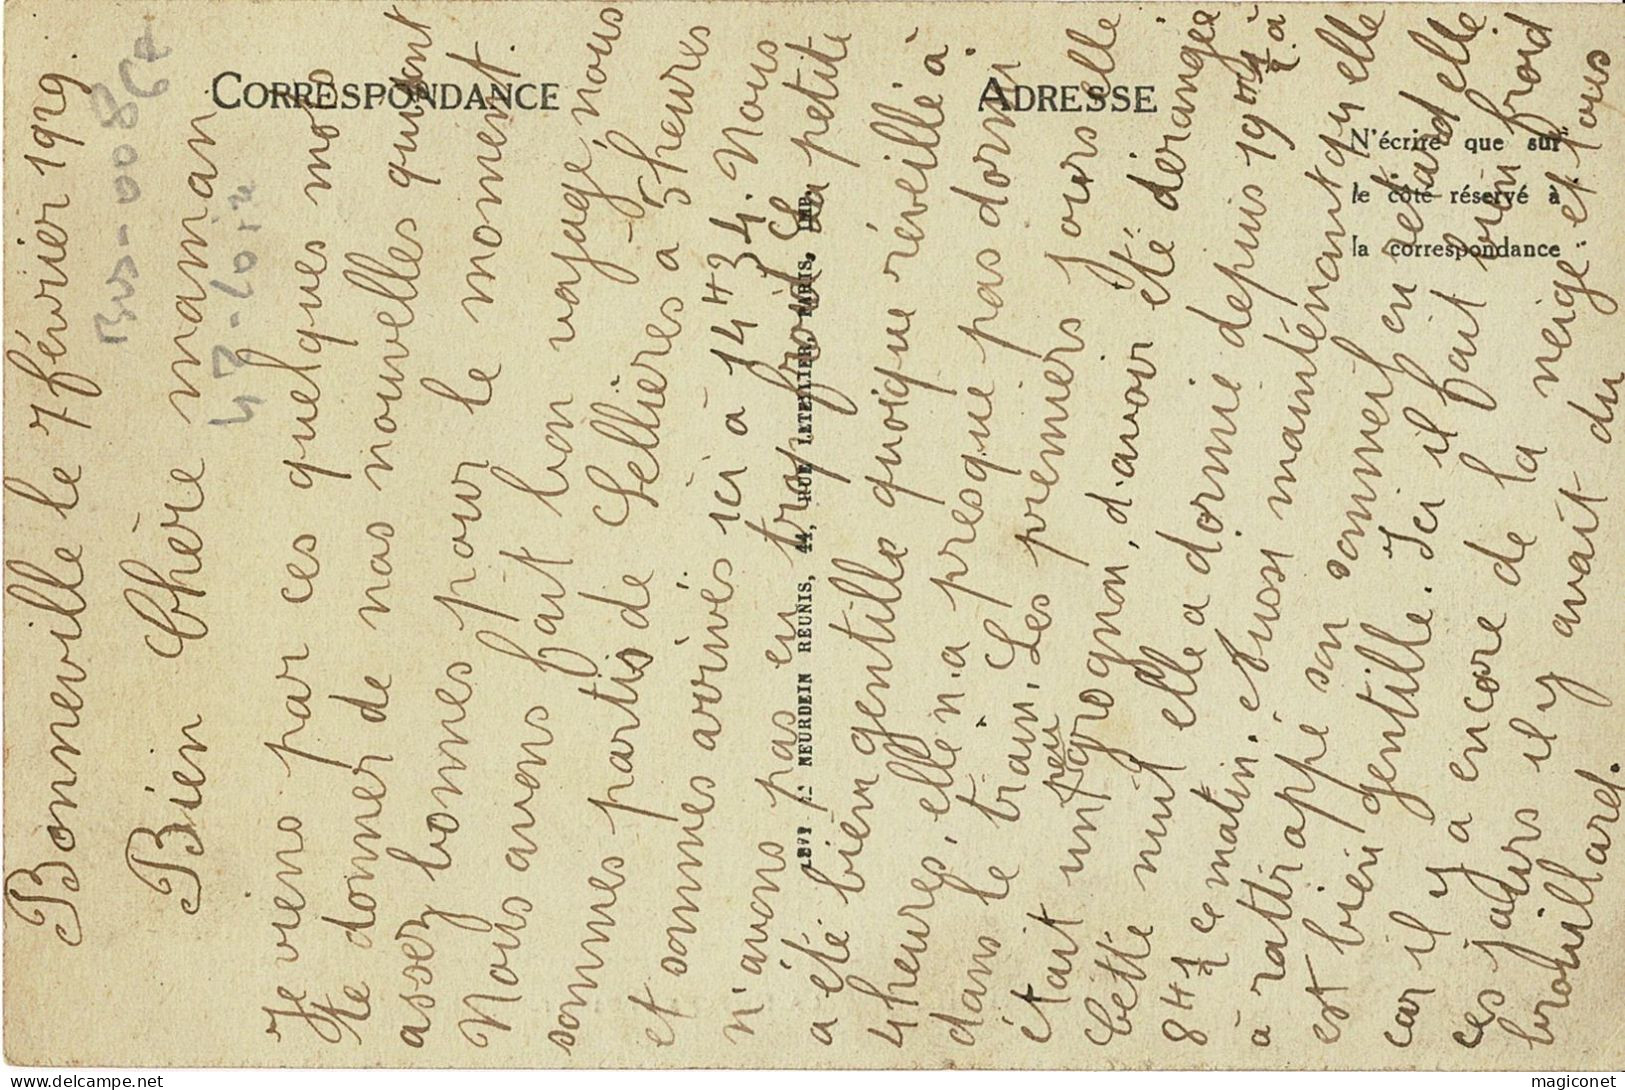 CORRESPONDANCE
ADRESSE
N'écrire que sur
le côté réservé à
la correspondance
LEVY et NEURDEIN REUNIS, 44, RUE LETELLIER, PARIS, IMP.
Bonneville le 7 février 1929.
Bien Chère maman
Je viens par ces quelques mots
te donner de nos nouvelles qui sont
assez bonnes pour le moment.
Nous avons fait bon voyage, nous
sommes partis de Sellières à 5 heures
et sommes arrivés ici à 14H34. Nous
n'avons pas eu trop froid. La petite
a été bien gentille quoique réveillé à
4 heures, elle n'a presque pas dormi
dans le train. Les premiers jours elle
était un peu grognon, d'avoir été dérangée
Cette nuit elle a dormie depuis 19H½ à
8H½ ce matin. Aussi maintenant qu'elle
à rattrappé son sommeil en retard elle
est bien gentille. Ici il fait bien froid
car il y a encore de la neige et tous
ces jours il y avait du
brouillard.
magiconet